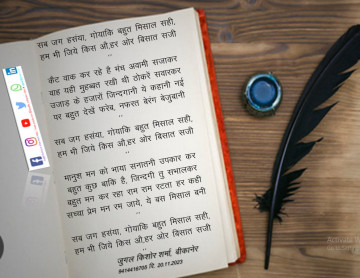 सब जग हसंया, गोयाकि बहुत मिसाल सही,
हम भी जिये किस ओ,हर ओर बिसात सजी
''
कैट वाक कर रहे है मंच अवामी सजाकर
वाह यही मुहब्बत रखी थी ठोकरें सवारकर
उजाड़ के हजारों जिन्दगानी ये कहानी नई
पर बहुत देखें फरेब, नफरत बेरंग बेजुबानी
''
सब जग हसंया, गोयाकि बहुत मिसाल सही,
हम भी जिये किस ओ,हर ओर बिसात सजी
''
मानुश मन को भाया सनातनी उपकार कर
बहुत कुछ बाकि है, जिन्दगी तु सभालकर
बहुत मन कर रहा राम राम रटता हर कही
सच्चा प्रेम मन रम जाये, ये बस मिसाल बनी
''
सब जग हसंया, गोयाकि बहुत मिसाल सही,
हम भी जिये किस ओ,हर ओर बिसात सजी
''
जुगल किशोर शर्मा, बीकानेर
9414416705 दि. 20.11.2023